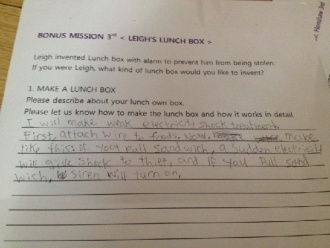 BONUS MISSION 3RD < LEIGH'S LUNCH BOX >
Leigh invented Lunch box with alarm to prevent him from being stolen.
If you were Leigh, what kind of lunch box would you like to invent?
1. MAKE A LUNCH BOX
Please describe about your lunch own box.
Please let us know how to make the lunch box and how it works in detail.
I will make weak electricity shock treatment.
First, attach wire to foods. Now, make
like this: if you pull sandwich, a sudden electrical
will give shock to thief, and if you pull sand
wich, siren will turn on.